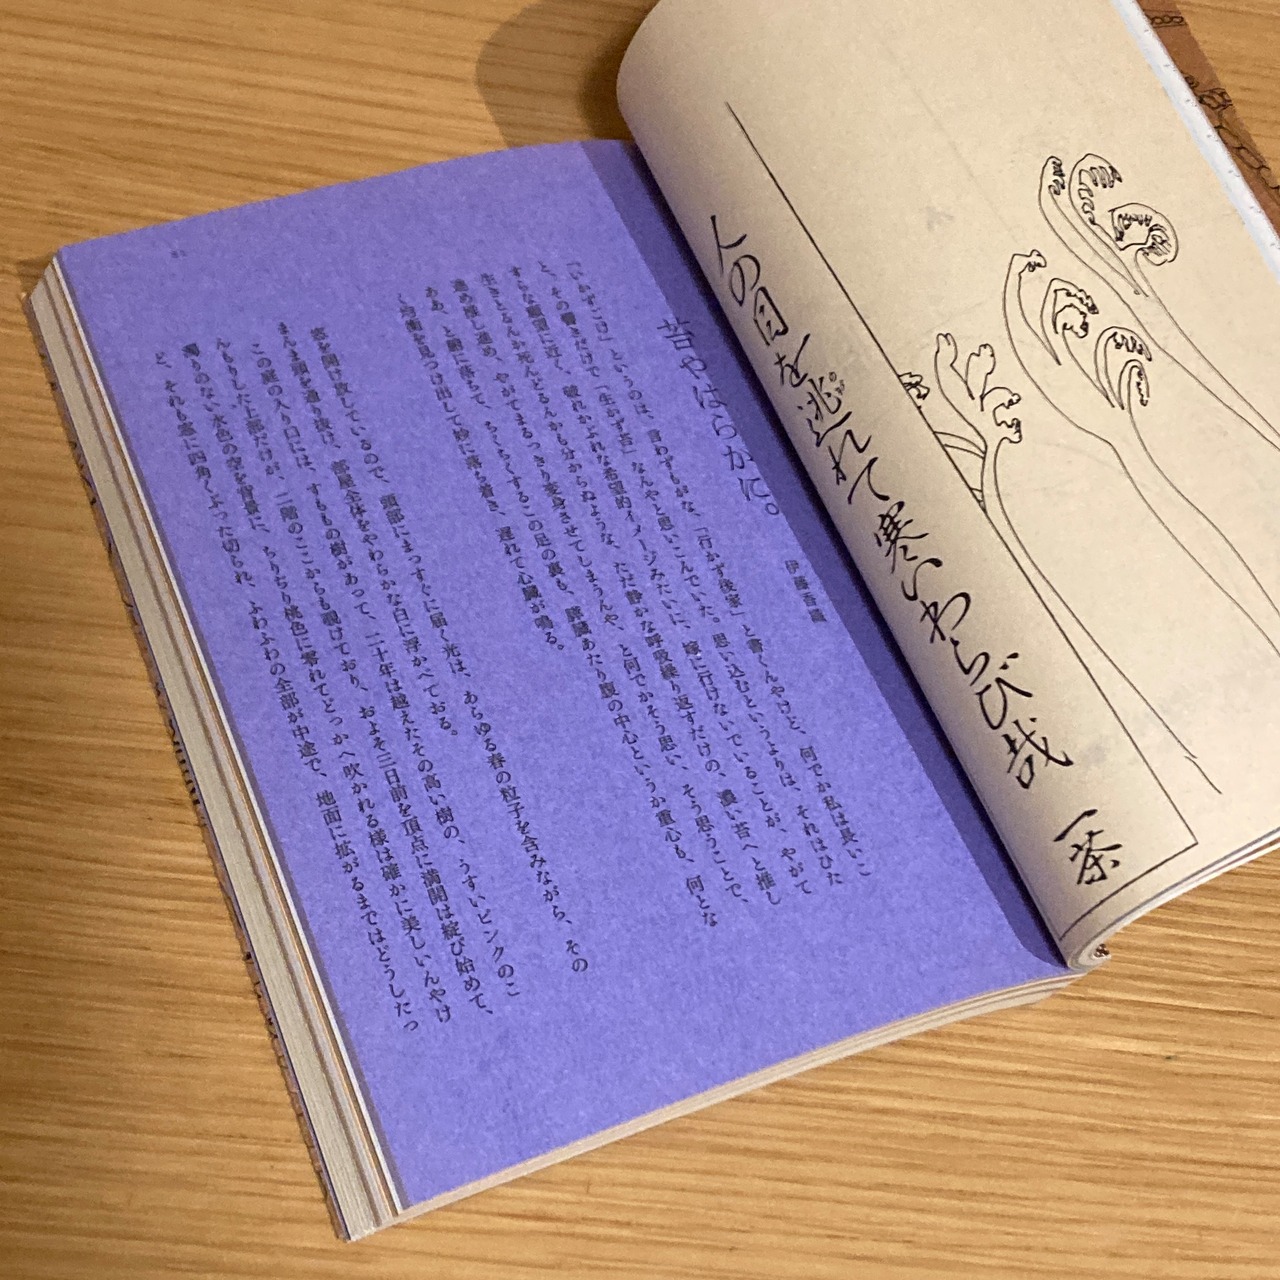 人の目を逃れて寒いわらび哉 一茶
苔やはらかに。
伊藤香織
「いかずごけ」というのは、言わずもがな、「行かず後家」と書くんやけど、何でか私は長いこ
と、その響きだけで「生かず苔」なんやと思いこんでいた。思い込むというよりは、それはひた
すらな願望に近く、破れかぶれな希望的イメージみたいに、嫁に行けないでいることが、やがて
生きとるんか死んどるんかも分からぬような、ただ静かな呼吸繰り返すだけの、濃い苔へと推し
進め推し進め、やがてまるっきり変身させてしまうんや、と何でかそう思い、そう思うことで、
ああ、と腑に落ちて、ちくちくするこの足の裏も、膵臓あたり腹の中心というか重心も、何とな
く均衡を見つけ出して妙に落ち着き、遅れて心臓が鳴る。
窓を開け放しているので、頭部にまっすぐに届く光は、あらゆる春の粒子を含みながら、その
まんま頭を通り抜け、部屋全体をやわらかな白に浮かべておる。
この庭の入り口には、すももの樹があって、二十年は越えたその高い樹の、うすいピンクのこ
んもりした上部だけが、二階のここからも覗けており、およそ三日前を頂点に満開は綻び始めて、
濁りのない水色の空を背景に、ちりちり桃色に零れてどっかへ吹かれる様は確かに美しいんやけ
ど、それも窓に四角くぶった切られ、ふわふわの全部が中途で、地面に拡がるまではどうしたっ
81